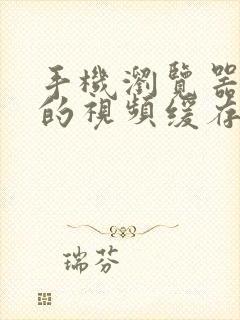 手機瀏覽器
的視頻緩存
瑞芬